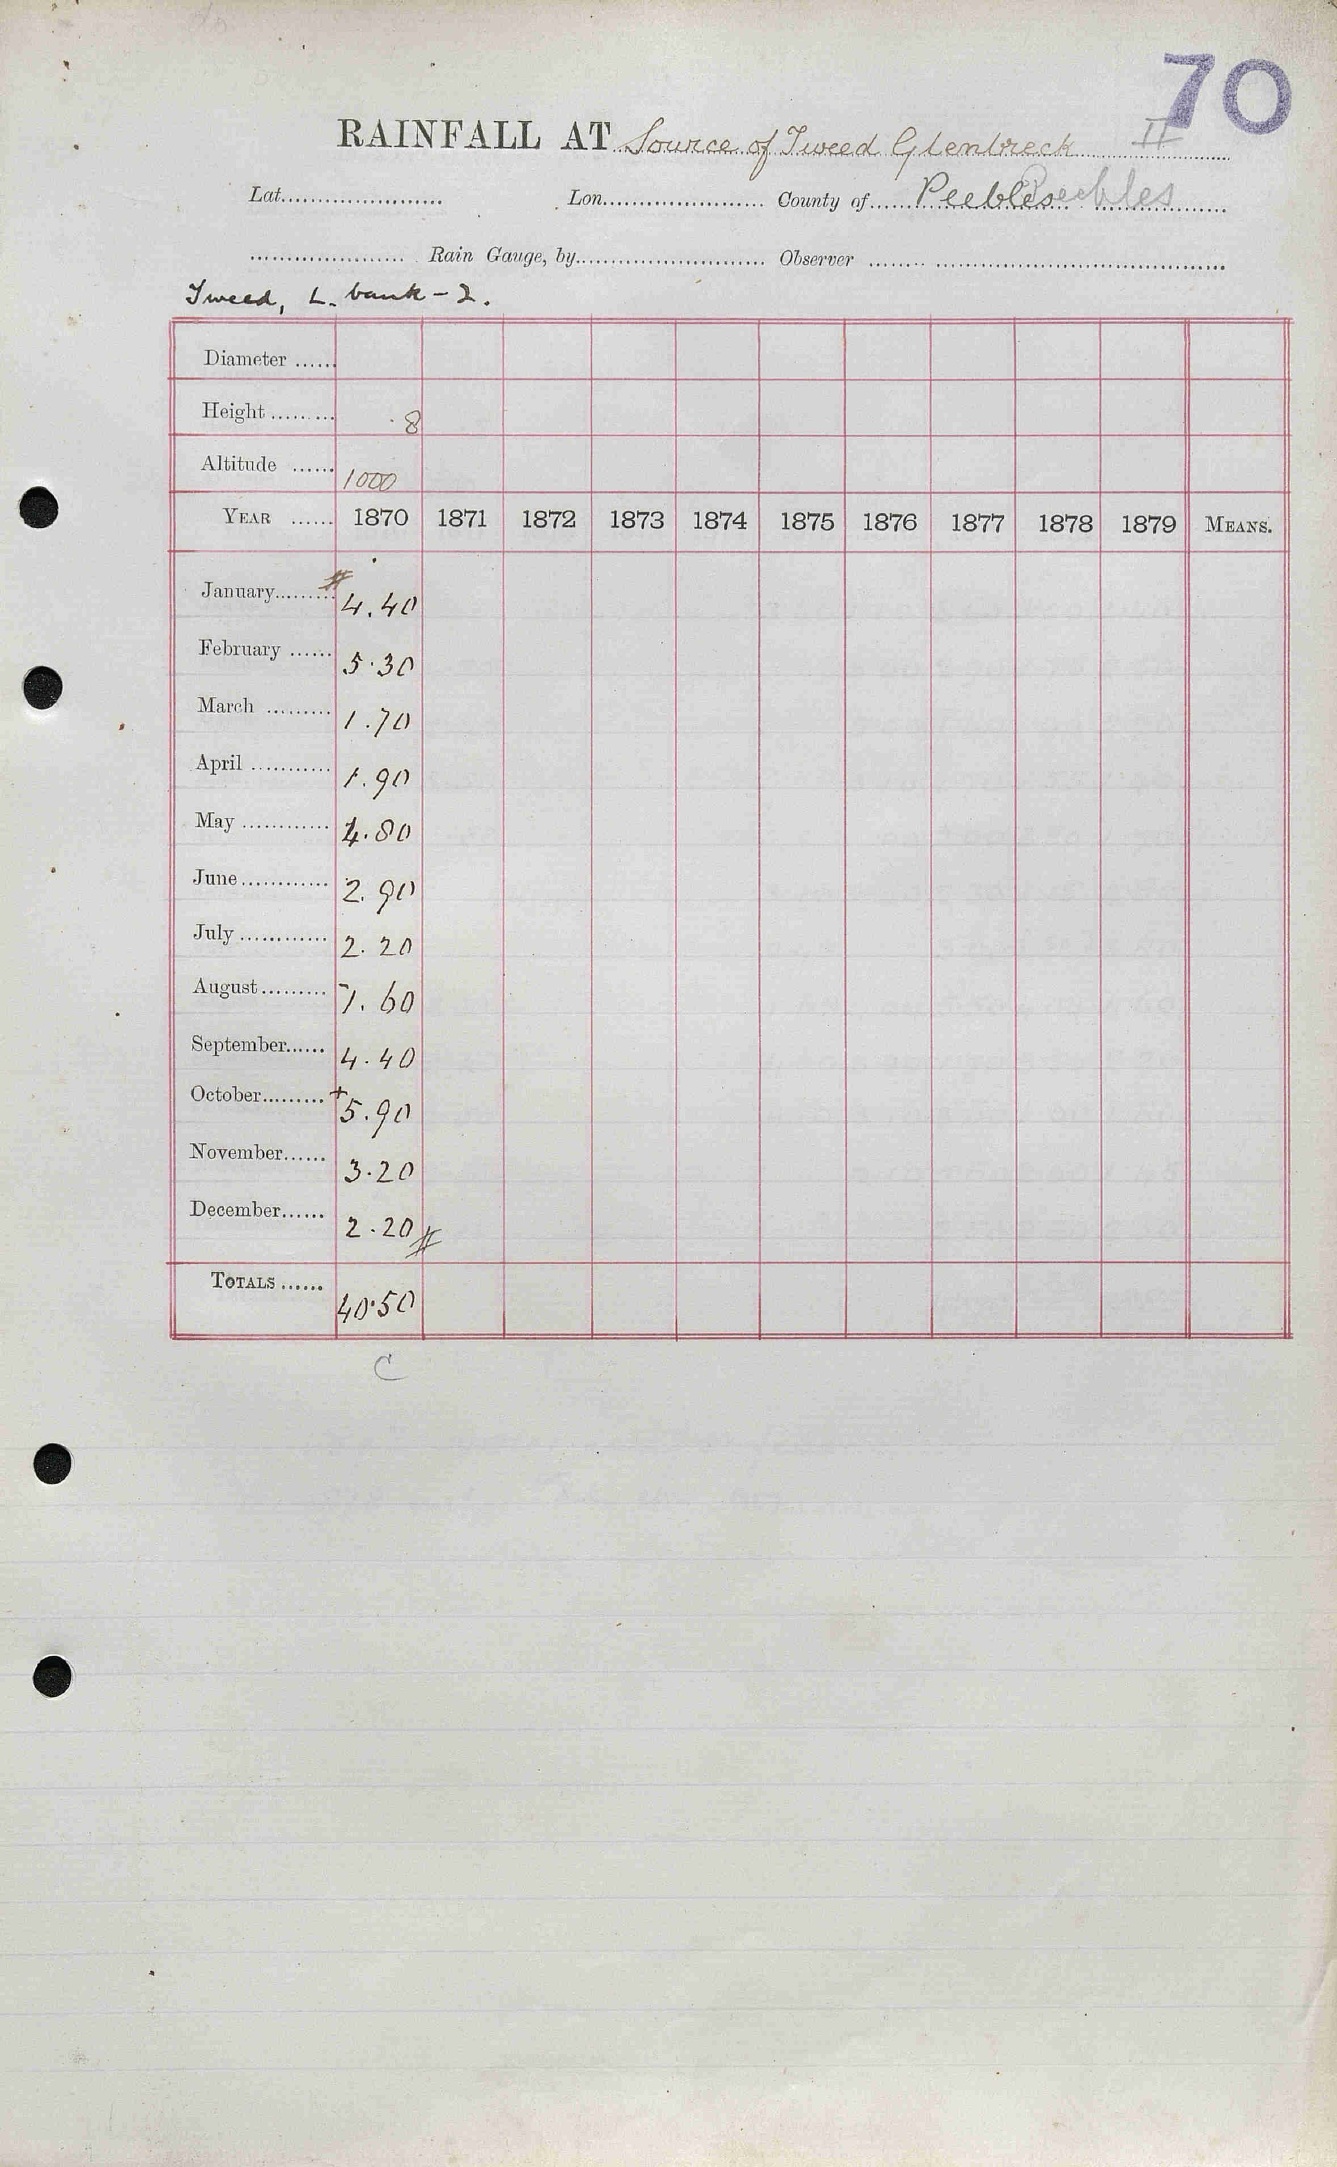 70
RAINFALL AT Source of Tweed Glenbreck II
Lat. Lon. County of Peebles Peebles
Rain Gauge, by Observer
Tweed, L. bank - 2.
Diameter ......
Height ......... .8
Altitude ...... 1000
YEAR ...... 1870 1871 1872 1873 1874 1875 1876 1877 1878 1879 MEANS.
January......... # 4.40
February ...... 5.30
March ......... 1.70
April ........... 1.90
May ............ 4.80
June............ 2.90
July ............ 2.20
August......... 1.60
September...... 4.40
October......... + 5.90
November...... 3.20
December...... 2.20 #
TOTALS ...... 40.50
C